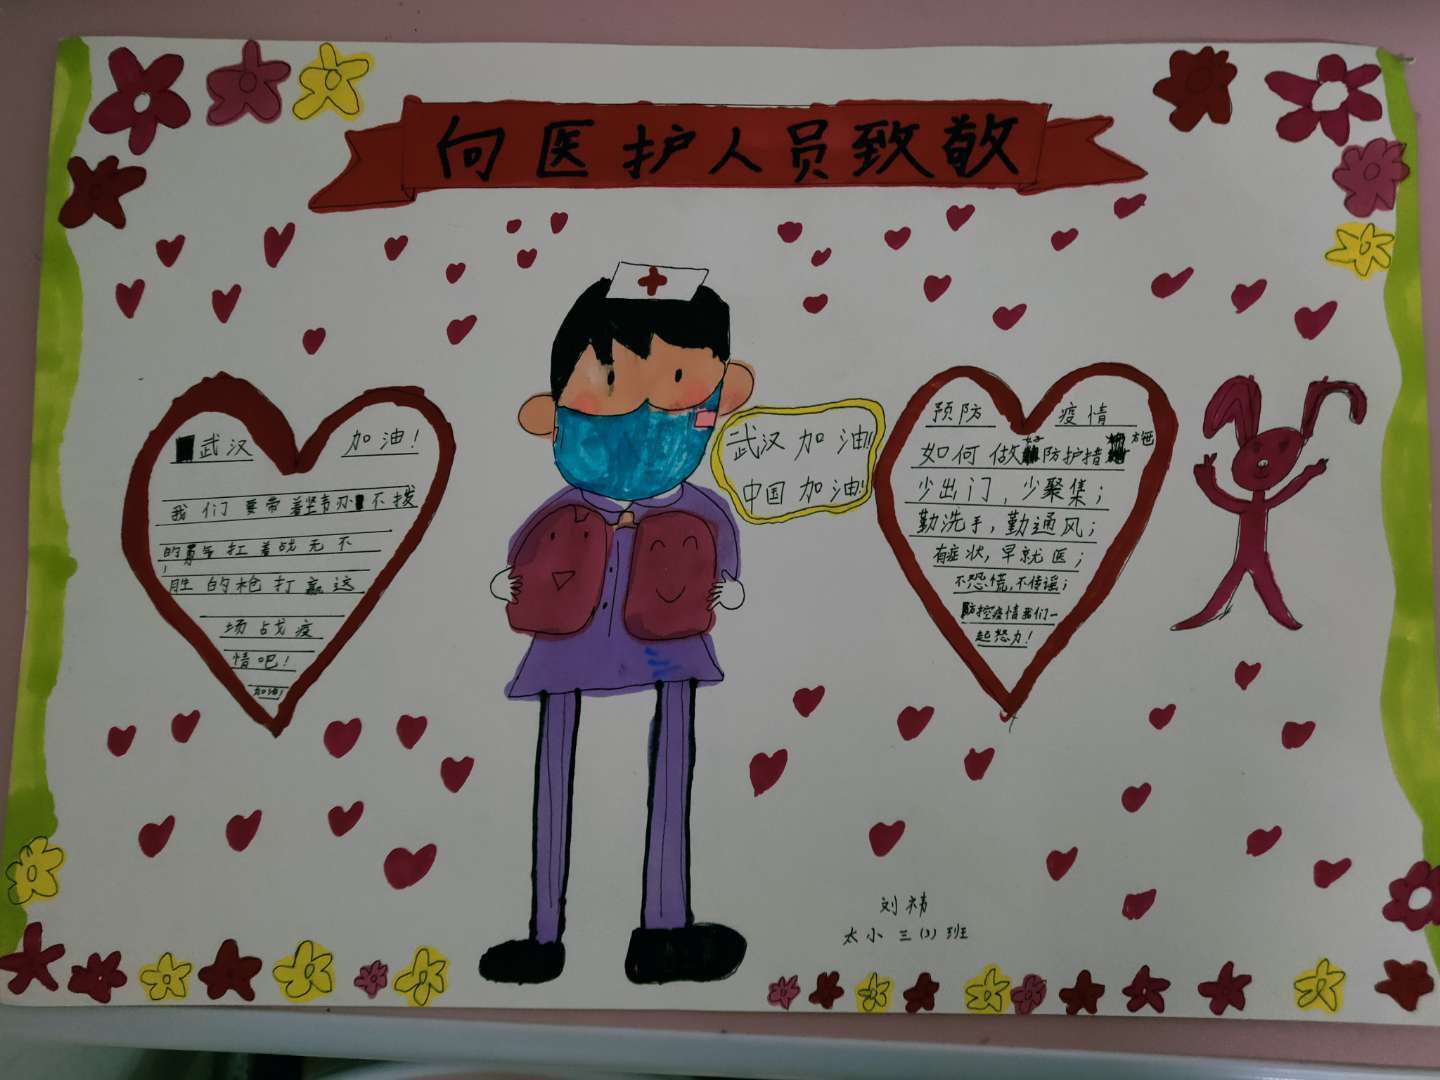 向医护人员致敬
武汉 加油！
我们要带着坚韧不拔
的勇气扛着战无不
胜的枪打赢这
场战疫
情吧！
加油！
武汉加油！！
中国加油！！
预防 疫情
如何做好防护措施
少出门，少聚集；
勤洗手，勤通风；
有症状，早就医；
不恐慌，不传谣；
防控疫情我们一
起努力！
刘
太小三(3)班